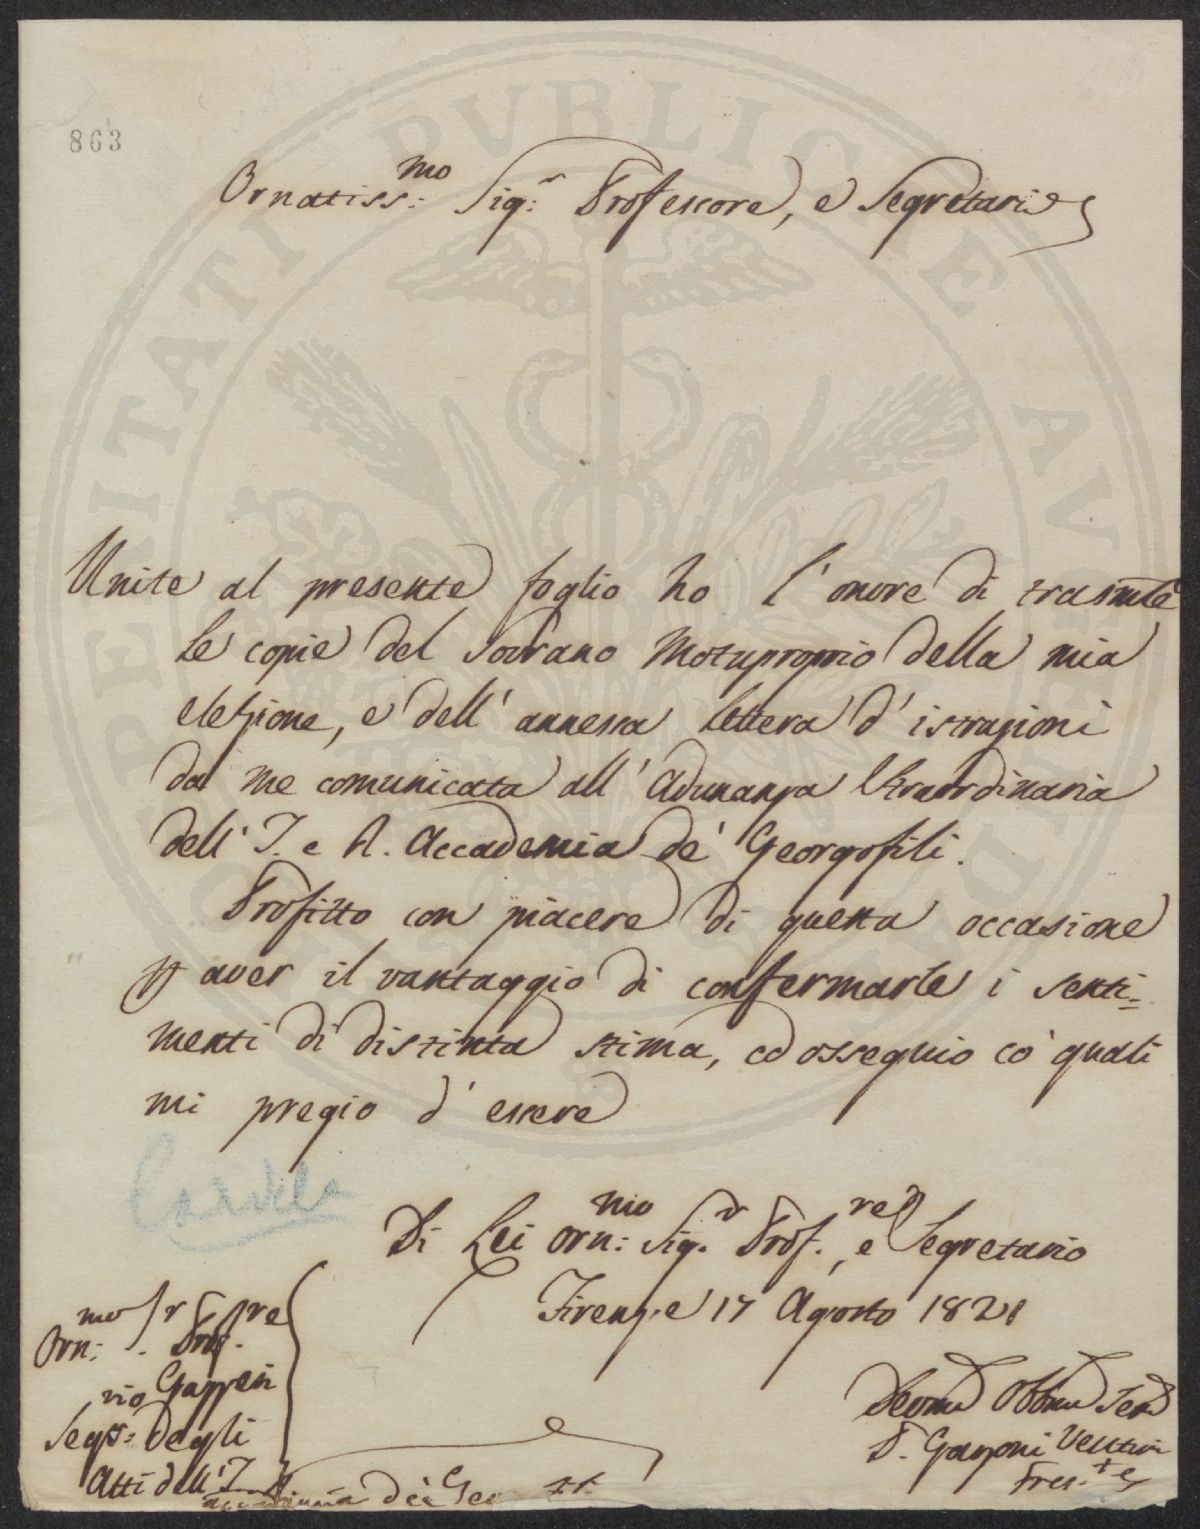 863
Ornatiss:mo Sig:r Professore, e Segretario
Unite al presente foglio ho l'onore di trasmle
le copie del Sovrano Motuproprio della mia
elezione, e dell'annessa lettera d'istruzioni
da me comunicata all'Adunanza Straordinaria
dell'I. e R. Accademia de' Georgofili.
Profitto con piacere di questa occasione
p aver il vantaggio di confermarle i senti=
menti di distinta stima, ed ossequio co' quali
mi pregio d'essere
Di Lei Orn:mo Sig.r Prof.re, e Segretario
Firenze 17 Agosto 1821
Orn:mo S.r Prof.re
Gazzeri
Seg:rio degli
Atti dell'I. e R.
Accademia dei Geo
Devmo Obbmo Ser
P. Garzoni Venturi
Pres.te
PVBLICAE